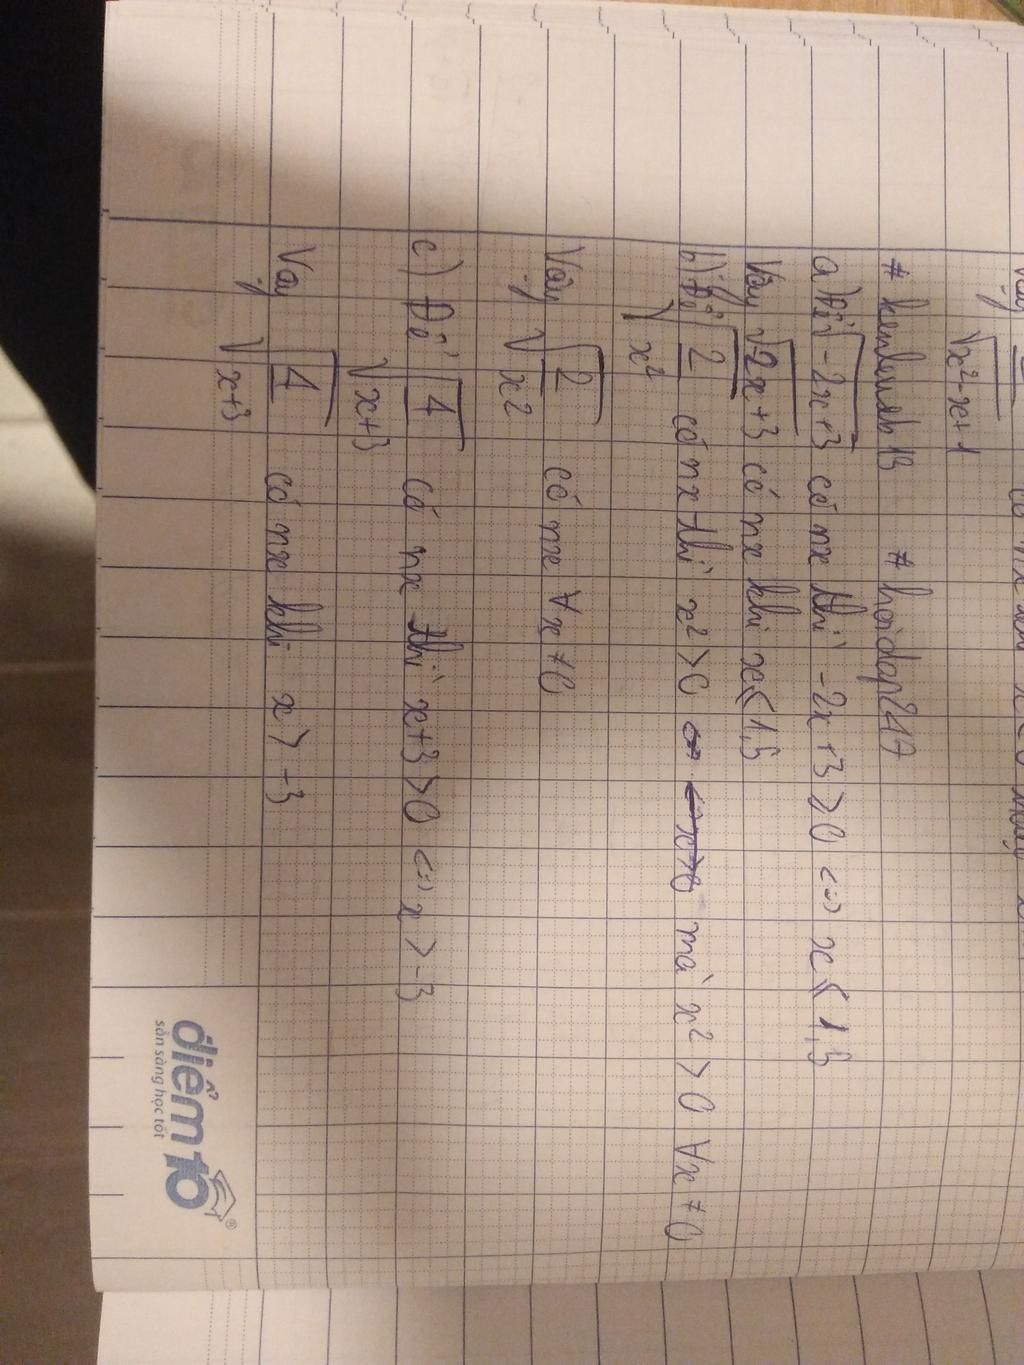 √(x²-x+1)
# kenlement 13 # hoidap247
a) Để √(-2x+3) có nx thì -2x+3 ≥ 0 <=> x ≤ 1,5
Vậy √(-2x+3) có nx khi x ≤ 1,5
b) Để √(2/x²) có nx thì x² > 0 mà x² > 0 ∀x ≠ 0
Vậy √(2/x²) có nx ∀x ≠ 0
c) Để √(4/(x+3)) có nx thì x+3 > 0 <=> x > -3
Vậy √(4/(x+3)) có nx khi x > -3
điểm 10 ®
sẵn sàng học tốt